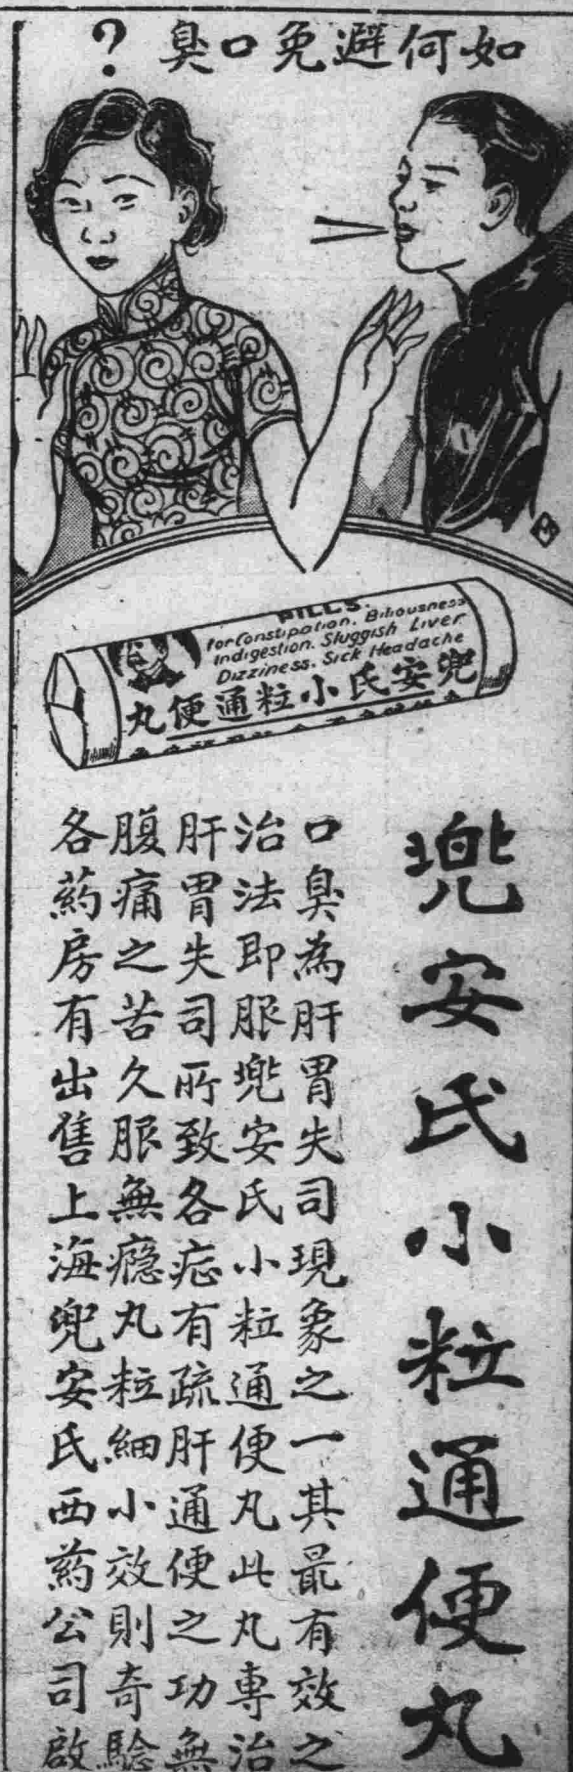 如何避免口臭？
PILLS.
for Constipation. Biliousness
Indigestion. Sluggish Liver
Dizziness. Sick Headache
兜安氏小粒通便丸
兜安氏小粒通便丸
口臭為肝胃失司現象之一其最有效之
治法即服兜安氏小粒通便丸此丸專治
肝胃失司所致各症有疏肝通便之功無
腹痛之苦久服無癮丸粒細小效則奇驗
各葯房有出售上海兜安氏西葯公司啟